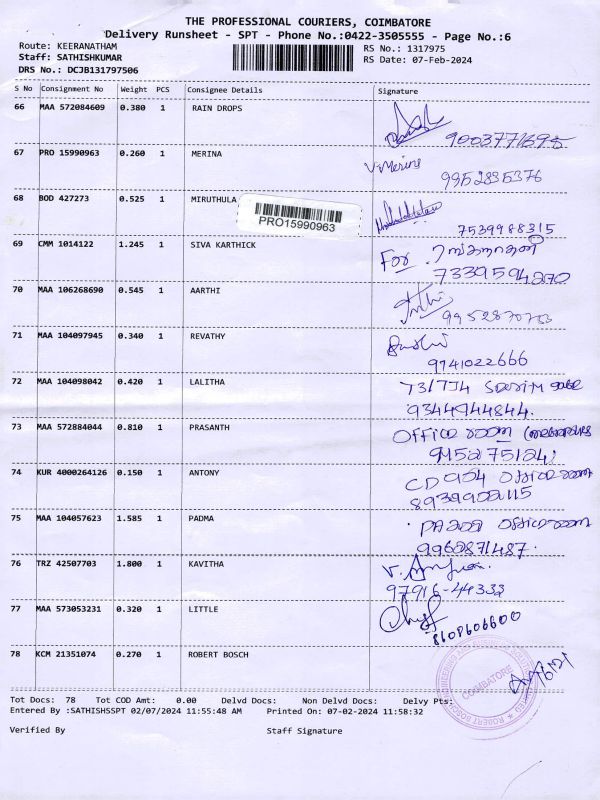 THE PROFESSIONAL COURIERS, COIMBATORE
Delivery Runsheet - SPT - Phone No.:0422-3505555 - Page No.:6
Route: KEERANATHAM RS No.: 1317975
Staff: SATHISHKUMAR RS Date: 07-Feb-2024
DRS No.: DCJB131797506
S No Consignment No Weight PCS Consignee Details Signature
66 MAA 572084609 0.380 1 RAIN DROPS
9003771695
67 PRO 15990963 0.260 1 MERINA
V. Merina
9952835376
68 BOD 427273 0.525 1 MIRUTHULA
PRO15990963
7539988315
69 CMM 1014122 1.245 1 SIVA KARTHICK
For
7339594270
70 MAA 106268690 0.545 1 AARTHI
71 MAA 104097945 0.340 1 REVATHY
9941022666
72 MAA 104098042 0.420 1 LALITHA
9344944844.
73 MAA 572884044 0.810 1 PRASANTH
OFFICE ROOM
74 KUR 4000264126 0.150 1 ANTONY
office room
75 MAA 104057623 1.585 1 PADMA
office room
9962871487.
76 TRZ 42507703 1.800 1 KAVITHA
97916-44333
77 MAA 573053231 0.320 1 LITTLE
78 KCM 21351074 0.270 1 ROBERT BOSCH
COIMBATORE
Tot Docs: 78 Tot COD Amt: 0.00 Delvd Docs: Non Delvd Docs: Delvy Pts:
Entered By :SATHISHSSPT 02/07/2024 11:55:48 AM Printed On: 07-02-2024 11:58:32
Verified By Staff Signature